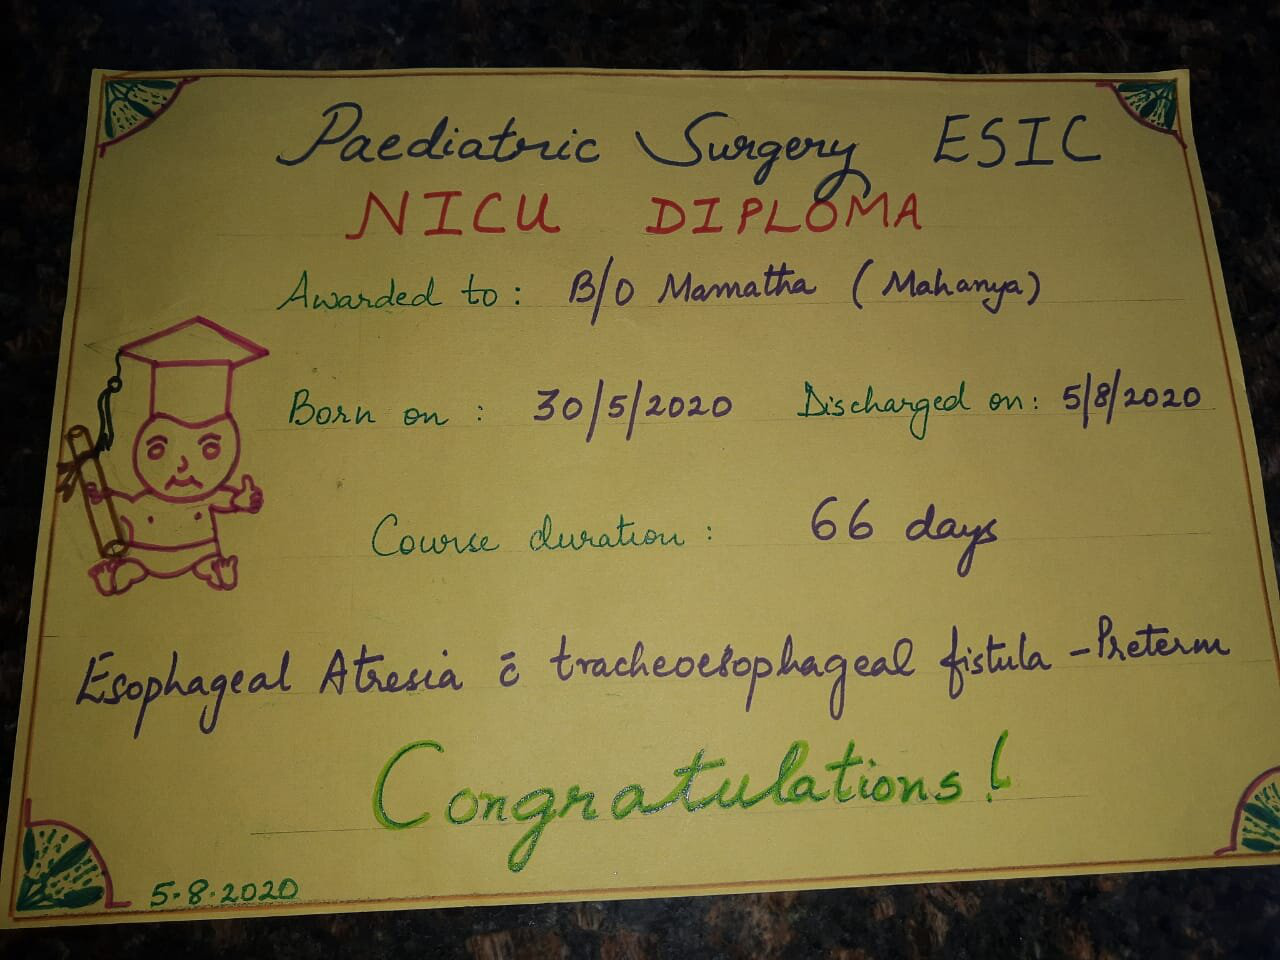 Paediatric Surgery ESIC
NICU DIPLOMA
Awarded to : B/O Mamatha ( Mahanya )
Born on : 30/5/2020 Discharged on : 5/8/2020
Course duration : 66 days
Esophageal Atresia c̄ tracheoesophageal fistula - Preterm
Congratulations !
5.8.2020